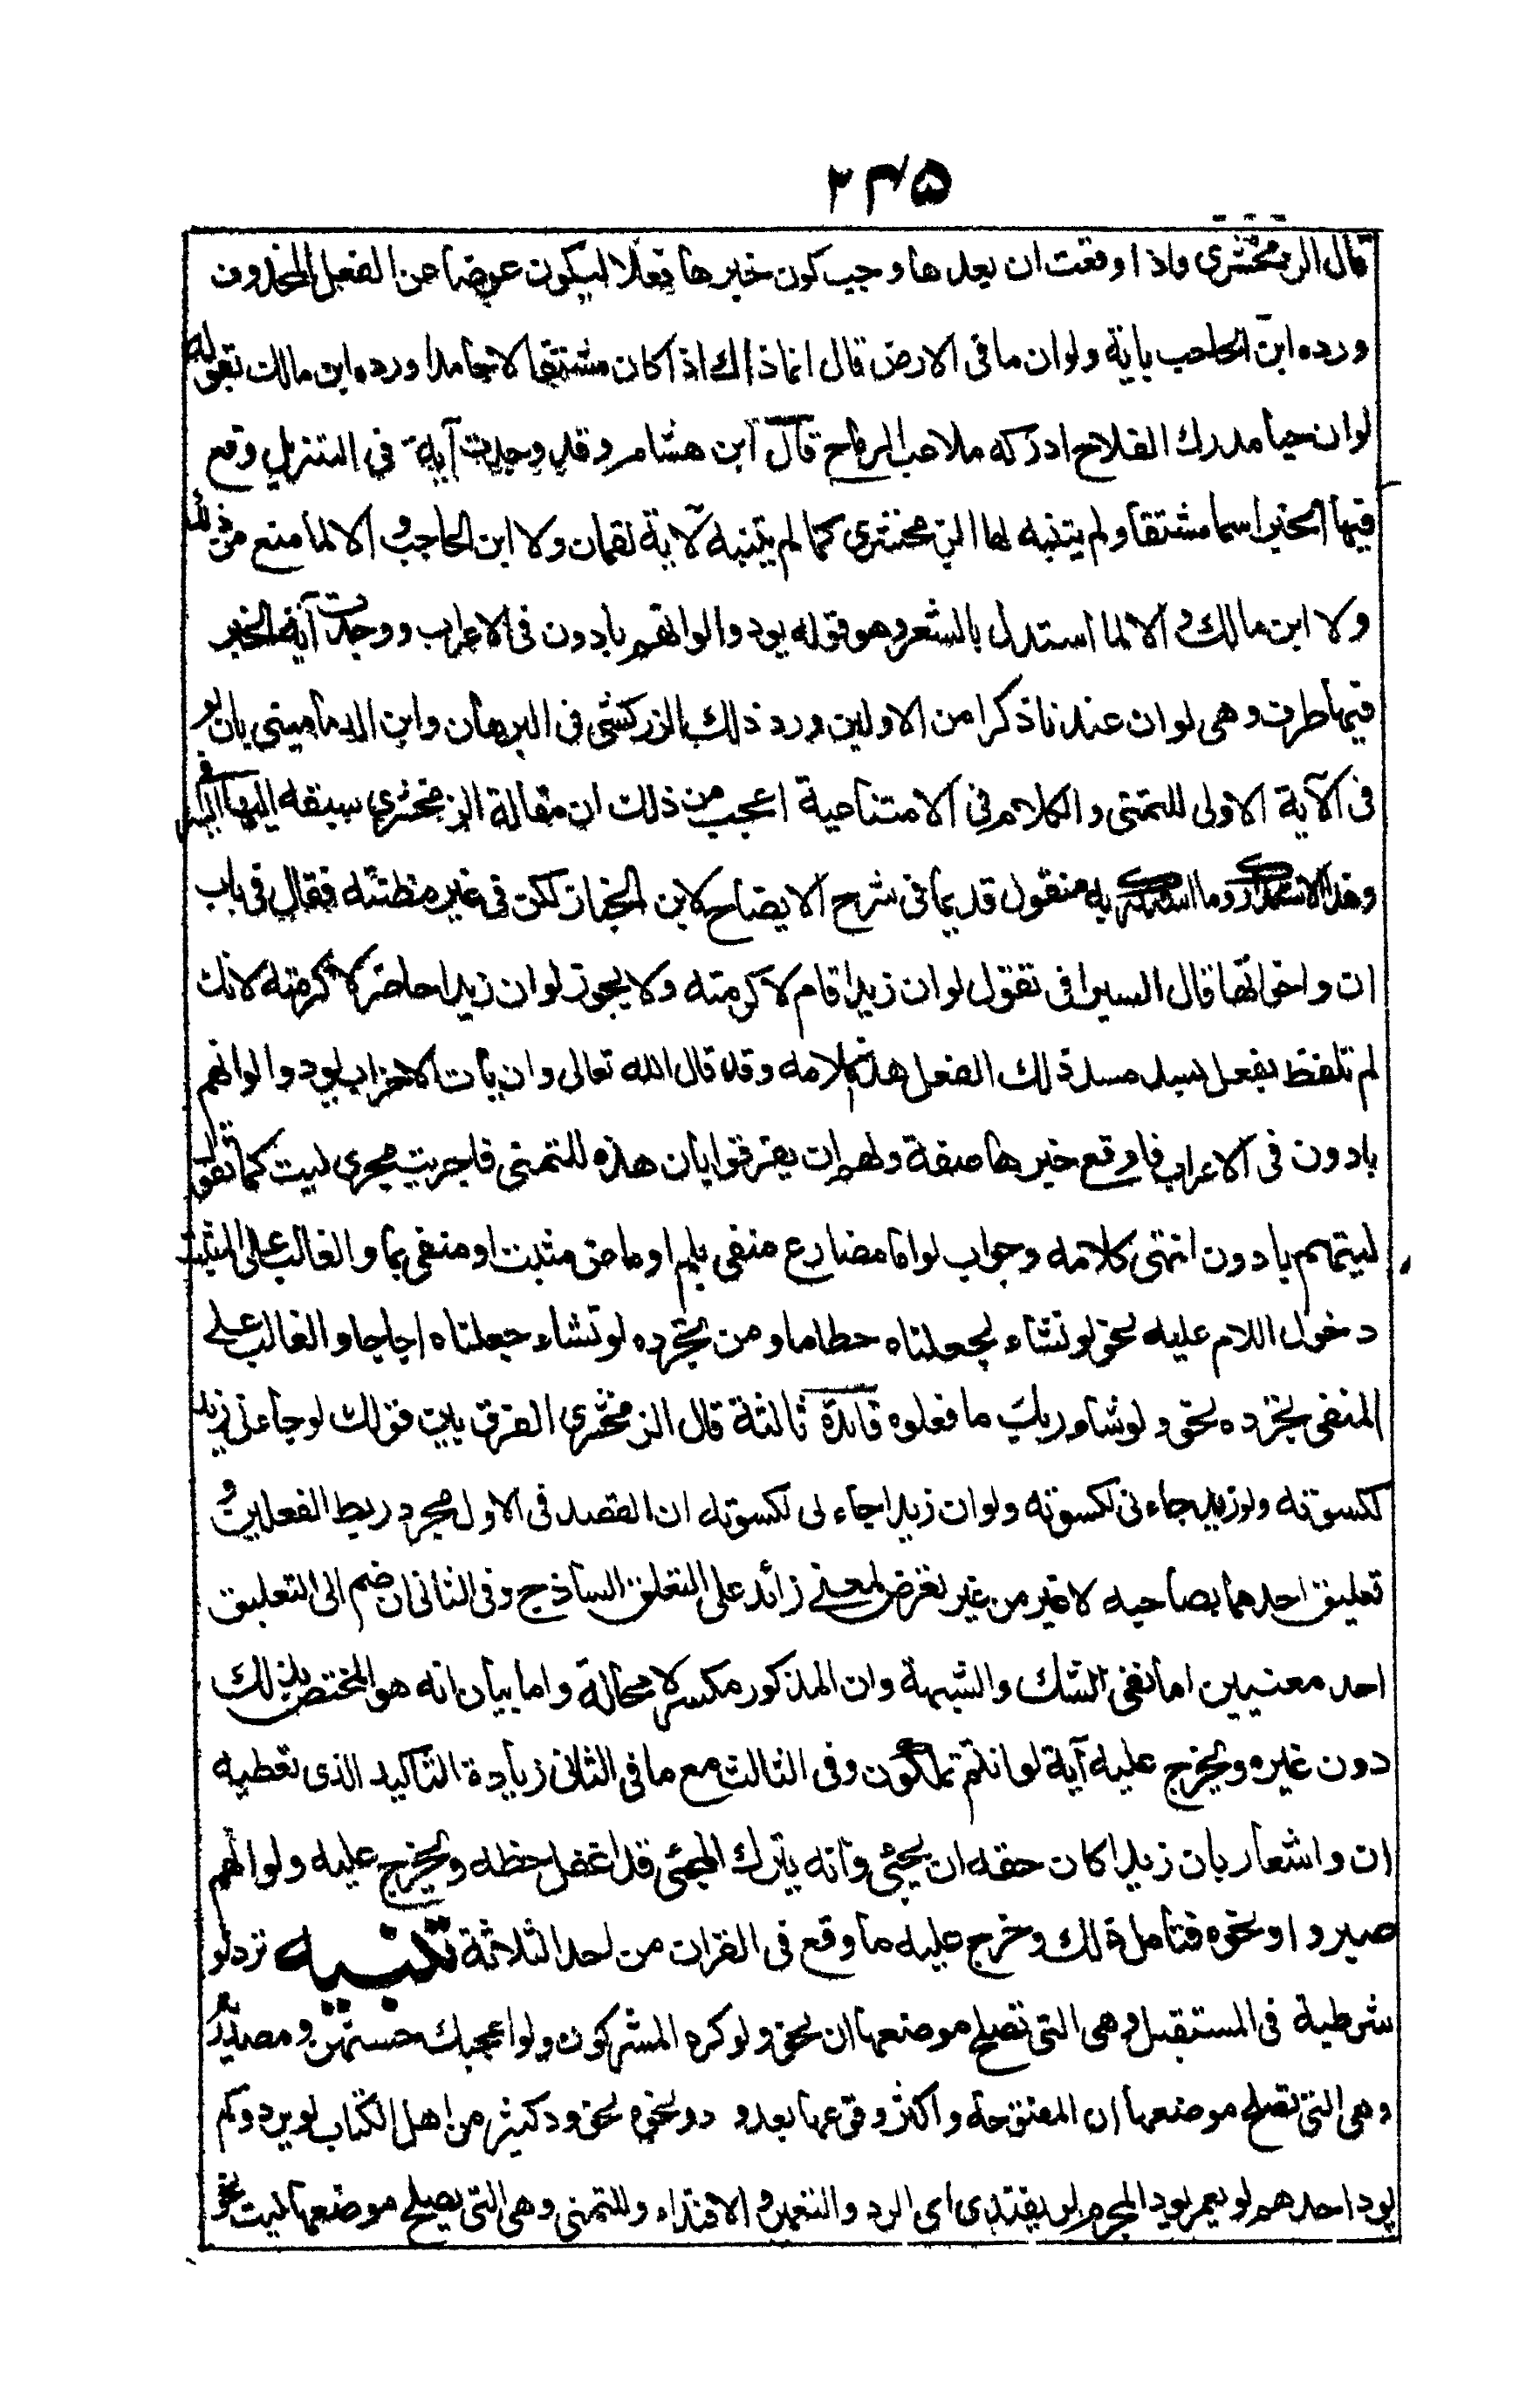 ٢٣٥
قال الزمخشري واذا وقعت ان بعدها وجب كون خبرها فعلا ليكون عوضا عن الفعل المحذوف
ورده ابن الحاجب باية ولو ان ما فى الارض قال انما ذاك اذا كان مشتقا لا جامدا ورده ابن مالك بقوله
لو ان حيا مدرك الفلاح ادركه ملاعب الرماح قال ابن هشام وقد وجدت آية فى التنزيل وقع
فيها الخبر اسما مشتقا ولم يتنبه لها الزمخشري كما لم يتنبه لآية لقمان ولا ابن الحاجب و الا لما منع من ذلك
ولا ابن مالك و الا لما استدل بالشعر وهو قوله يودوا لو انهم بادون فى الاعراب ووجدت آية الخبر
فيها ظرف وهى لو ان عندنا ذكرا من الاولين ورد ذلك الزركشى فى البرهان وابن الدمامينى بان لو
فى الآية الاولى للتمنى والكلام فى الامتناعية اعجب من ذلك ان مقالة الزمخشري سبقه اليها السيرافى
وهذا الاستدراك وما استدرك به منقول قديما فى شرح الايضاح لابن الخباز لكن فى غير مظنته فقال فى باب
ان واخواتها قال السيرافى تقول لو ان زيدا قام لاكرمته ولا يجوز لو ان زيدا حاضر لاكرمته لانك
لم تلفظ بفعل يسد مسد ذلك الفعل هذا كلامه وقد قال الله تعالى وان يأت الاحزاب يودوا لو انهم
بادون فى الاعراب فاوقع خبرها صفة ولهم ان يفرقوا بان هذه للتمنى فاجريت مجرى ليت كما تقول
ليتهم بادون انتهى كلامه وجواب لو اما مضارع منفى بلم او ماض مثبت او منفى بما والغالب على المثبت
دخول اللام عليه نحو لو نشاء لجعلناه حطاما ومن تجرده لو نشاء جعلناه اجاجا والغالب على
المنفى تجرده نحو ولو شاء ربك ما فعلوه فائدة ثالثة قال الزمخشري الفرق بين قولك لو جاءنى زيد
لكسوته ولو زيد جاءنى لكسوته ولو ان زيدا جاء لى لكسوته ان القصد فى الاول مجرد ربط الفعلين و
تعليق احدهما بصاحبه لا غير من غير تعرض لمعنى زائد على التعلق الساذج وفى الثانى ان ضم الى التعليق
احد معنيين اما نفى الشك والشبهة وان المذكور مكسو لا محالة واما بيان انه هو المختص بذلك
دون غيره ويخرج عليه آية لو انتم تملكون وفى الثالث مع ما فى الثانى زيادة التاكيد الذى تعطيه
ان واشعار بان زيدا كان حقه ان يجئى وانه بترك المجئى قد اغفل حظه ويخرج عليه ولو انهم
صبروا ونحوه فتأمل ذلك وخرج عليه ما وقع فى القران من احد الثلاثة تنبيه ترد لو
شرطية فى المستقبل وهى التى تصلح موضعها ان نحو ولو كره المشركون ولو اعجبك حسنهن ومصدرية
وهى التى تصلح موضعها ان المفتوحة واكثر وقوعها بعد ود ونحوه نحو ود كثير من اهل الكتاب لو يردونكم
يود احدهم لو يعمر يود المجرم لو يفتدى اى الرد والتعمير و الافتداء وللتمنى وهى التى يصلح موضعها ليت نحو